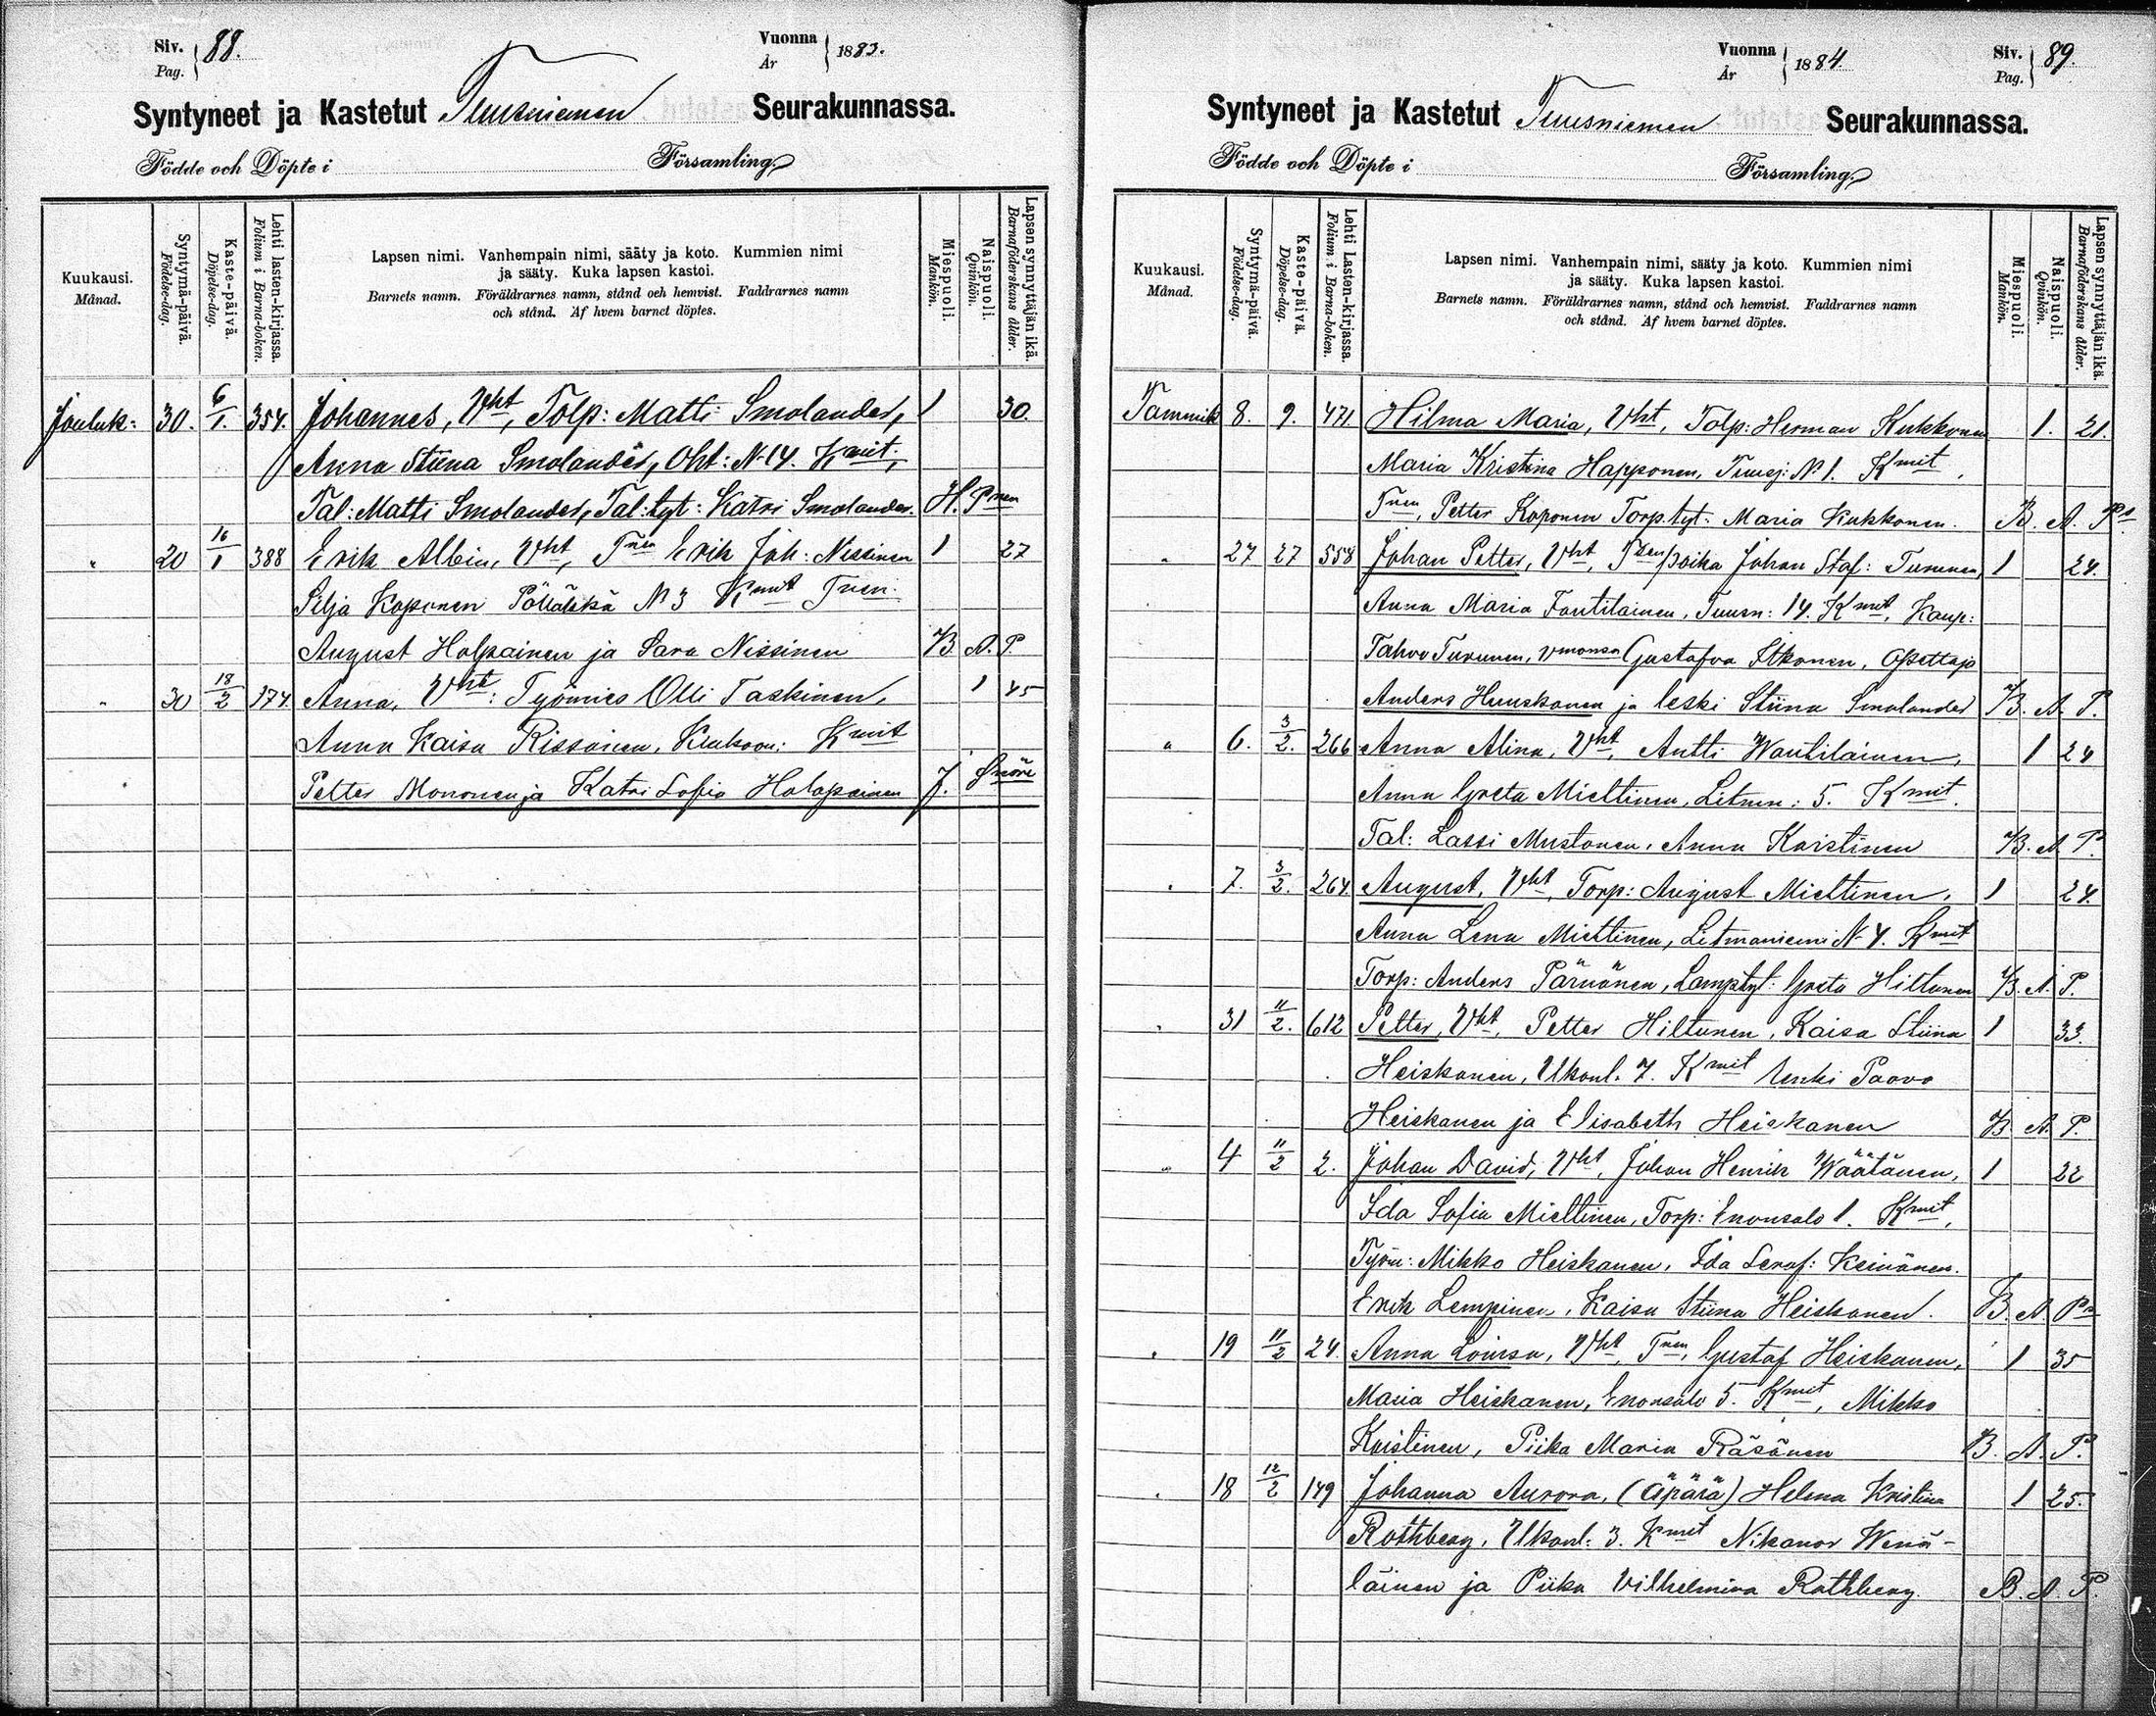 Siv. Pag. 88.
Vuonna År 1883.
Syntyneet ja Kastetut Tuusniemen Seurakunnassa.
Födde och Döpte i Församling.
Kuukausi. Månad.
Syntymä-päivä. Födelse-dag.
Kaste-päivä. Döpelse-dag.
Lehti lasten-kirjassa. Folium i Barna-boken.
Lapsen nimi. Vanhempain nimi, sääty ja koto. Kummien nimi
ja sääty. Kuka lapsen kastoi.
Barnets namn. Föräldrarnes namn, stånd och hemvist. Faddrarnes namn
och stånd. Af hvem barnet döptes.
Miespuoli. Mankön.
Naispuoli. Qvinkön.
Lapsen synnyttäjän ikä. Barnaföderskans ålder.
Jouluk: 30. 6/1. 354. Johannes, Vht, Tolp: Matti Smolander, 1 30.
Anna Stiina Smolander, Oht: N 14. Kmit.
Tal: Matti Smolander, Tal: tyt: Katri Smolander. H. Pnen
" 20 16/1 388 Erik Albin, Vht, Tnen Erik Joh: Nissinen 1 27
Silja Koponen Pölläkkä N 3 Kmit Tnen
August Holpainen ja Sara Nissinen B. A. P.
" 30 18/2 174. Anna, Vht: Työmies Olli Taskinen, 1 45
Anna Kaisa Rissanen, Kmit
Petter Mononen ja Katri Sofia Holopainen J.
Vuonna År 1884.
Siv. Pag. 89.
Syntyneet ja Kastetut Tuusniemen Seurakunnassa.
Födde och Döpte i Församling.
Kuukausi. Månad.
Syntymä-päivä. Födelse-dag.
Kaste-päivä. Döpelse-dag.
Lehti Lasten-kirjassa. Folium i Barna-boken.
Lapsen nimi. Vanhempain nimi, sääty ja koto. Kummien nimi
ja sääty. Kuka lapsen kastoi.
Barnets namn. Föräldrarnes namn, stånd och hemvist. Faddrarnes namn
och stånd. Af hvem barnet döptes.
Miespuoli. Mankön.
Naispuoli. Qvinkön.
Lapsen synnyttäjän ikä. Barnaföderskans ålder.
Tammik 8. 9. 471. Hilma Maria, Vht, Tolp: Herman Kukkonen 1. 21.
Maria Kristina Happonen, Tuusj: N 1. Kmit,
Tnen, Petter Koponen Torp. tyt: Maria Kukkonen. B. A. Pn
" 27 27 558 Johan Petter, Vht, Tnen poika Johan Staf: Turunen, 1 24.
Anna Maria Tantilainen, Tuusn: 14. Kmit, Kaup:
Tahvo Turunen, vmonsa Gustafva Itkonen, Opettaja
Anders Huuskonen ja leski Stiina Smolander B. A. P.
" 6. 3/2. 266 Anna Alina, Vht, Antti Wantilainen, 1 24
Anna Greta Miettinen, Litmn: 5. Kmit.
Tal: Lassi Mustonen, Anna Karistinen B. A. P.
" 7. 3/2. 264. August, Vht, Torp: August Miettinen, 1 24.
Anna Lena Miettinen, Litmaniemi N 4. Kmit
Torp: Anders Pärnänen, Lamp. tyt: Greta Hiltunen B. A. P.
" 31 11/2. 612 Petter, Vht, Petter Hiltunen, Kaisa Stiina 1 33.
Heiskanen, Ukonl. 7. Kmit Renki Paavo
Heiskanen ja Elisabeth Heiskanen B. A. P.
" 4 11/2 2. Johan David, Vht, Johan Henrik Väätänen, 1 22
Ida Sofia Miettinen, Torp: Enonsalo 1. Kmit,
Työm: Mikko Heiskanen, Ida Seraf: Keinänen.
Erik Lempinen, Kaisa Stiina Heiskanen. B. A. Pn
" 19 11/2 24. Anna Lovisa, Vht, Tnen, Gustaf Heiskanen, 1 35
Maria Heiskanen, Enonsalo 5. Kmit, Mikko
Karistinen, Piika Maria Räsänen B. A. P.
" 18 12/2 149 Johanna Aurora, (äpärä) Helena Kristina 1 25.
Rothberg, Ukonl: 3. Kmit Nikanor Wenä-
läinen ja Piika Vilhelmina Rothberg. B. A. P.